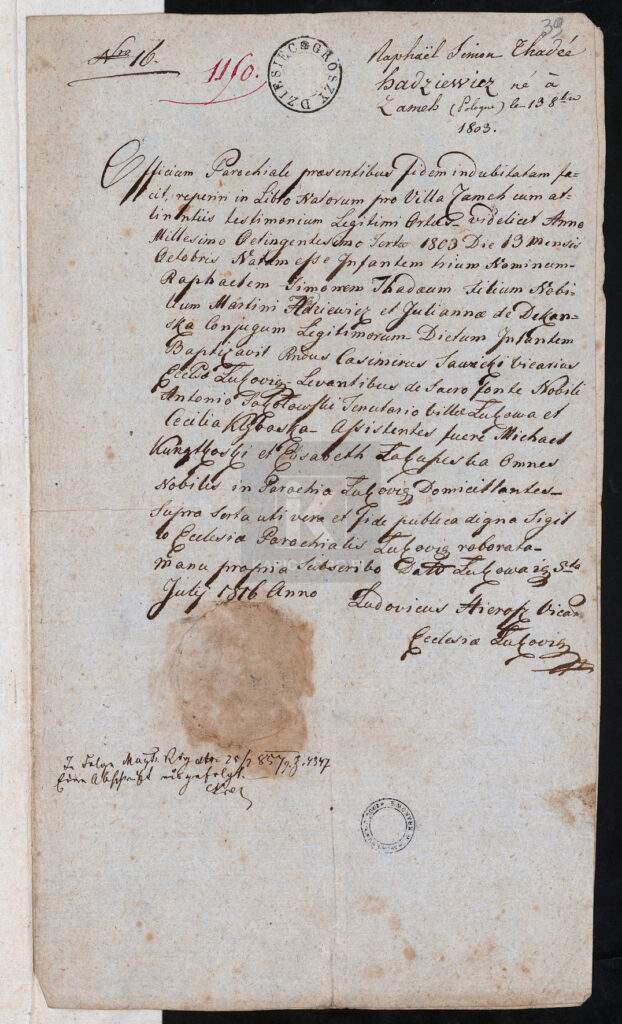 39
Nro 16.
1160.
DZIESIĘC GROSZY
Raphaël Simon Thadeé
hadziewicz né à
Zameh (Pologne) le 13 8bre
1803.
Officium Parochiale præsentibus fidem indubitatam fa-
cit, reperiri in Libro Natorum pro Villa Zameh cum at-
tinentiis testimonium Legitimi Ortus videlicet Anno
Millesimo Octingentesimo Tertio 1803 Die 13 mensis
Octobris Natum esse Infantem trium Nominum
Raphaelem Simonem Thadæum filium Nobi-
lium Martini Adziewicz et Juliannæ de Dekan-
ska Conjugum Legitimorum Dictum Infantem
Baptizavit Rndus Casimirus Vicarius
Ecclsæ Levantibus de Sacro fonte Nobili
Antonio Tenutario Villæ Lukowa et
Cecilia Assistentes fuere Michael
et Elisabeth Omnes
Nobiles in Parochia Domicillantes
Supra Scrta uti vera et fide publica digna Sigil
lo Ecclesiæ Parochialis roborata
manu propria Subscribo Datt
Julij 1816 Anno Ludovicus Vicar
Ecclesiæ
In Folge Magts. 857 z. 4347
Eine Abschrift ausgefolgt.